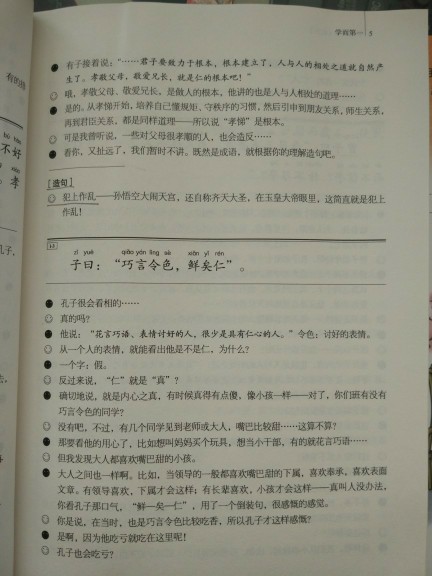 学而第一 5
有子接着说：“……君子要致力于根本，根本建立了，人与人的相处之道就自然产
生了。孝敬父母，敬爱兄长，就是仁的根本吧！”
哦，孝敬父母、敬爱兄长，是做人的根本，他讲的也是人与人相处的道理……
是的。从孝悌开始，培养自己懂规矩、守秩序的习惯，然后引申到朋友关系，师生关系，
再到君臣关系，都是同样道理——所以说“孝悌”是根本。
可是我曾听说，一些对父母很孝顺的人，也会造反……
看你，又扯远了，我们暂时不讲。既然是成语，就根据你的理解造句吧。
［造句］
犯上作乱——孙悟空大闹天宫，还自称齐天大圣，在玉皇大帝眼里，这简直就是犯上
作乱！
zǐ yuē qiǎo yán lìng sè xiǎn yǐ rén
子曰：“巧言令色，鲜矣仁”。
孔子很会看相的……
真的吗？
他说：“花言巧语、表情讨好的人，很少是具有仁心的人。”令色：讨好的表情。
从一个人的表情，就能看出他是不是仁，为什么？
一个字：假。
反过来说，“仁”就是“真”？
确切地说，就是内心之真，有时候真得有点傻，像小孩一样——对了，你们班有没有
巧言令色的同学？
没有吧，不过，有几个同学见到老师或大人，嘴巴比较甜……这算不算？
那要看他的用心了，比如想叫妈妈买个玩具，想当小干部，有的就花言巧语……
但我发现大人都喜欢嘴巴甜的小孩。
大人之间也一样啊。比如，当领导的一般都喜欢嘴巴甜的下属，喜欢奉承，喜欢表面
文章。有领导喜欢，下属才会这样；有长辈喜欢，小孩才会这样——真叫人没办法，
你看孔子那口气，“鲜—矣—仁”，用了一个倒装句，很感慨的感觉。
你是说，在当时，也是巧言令色比较吃香，所以孔子才这样感慨？
是啊，因为他吃亏就吃在这里呢！
孔子也会吃亏？